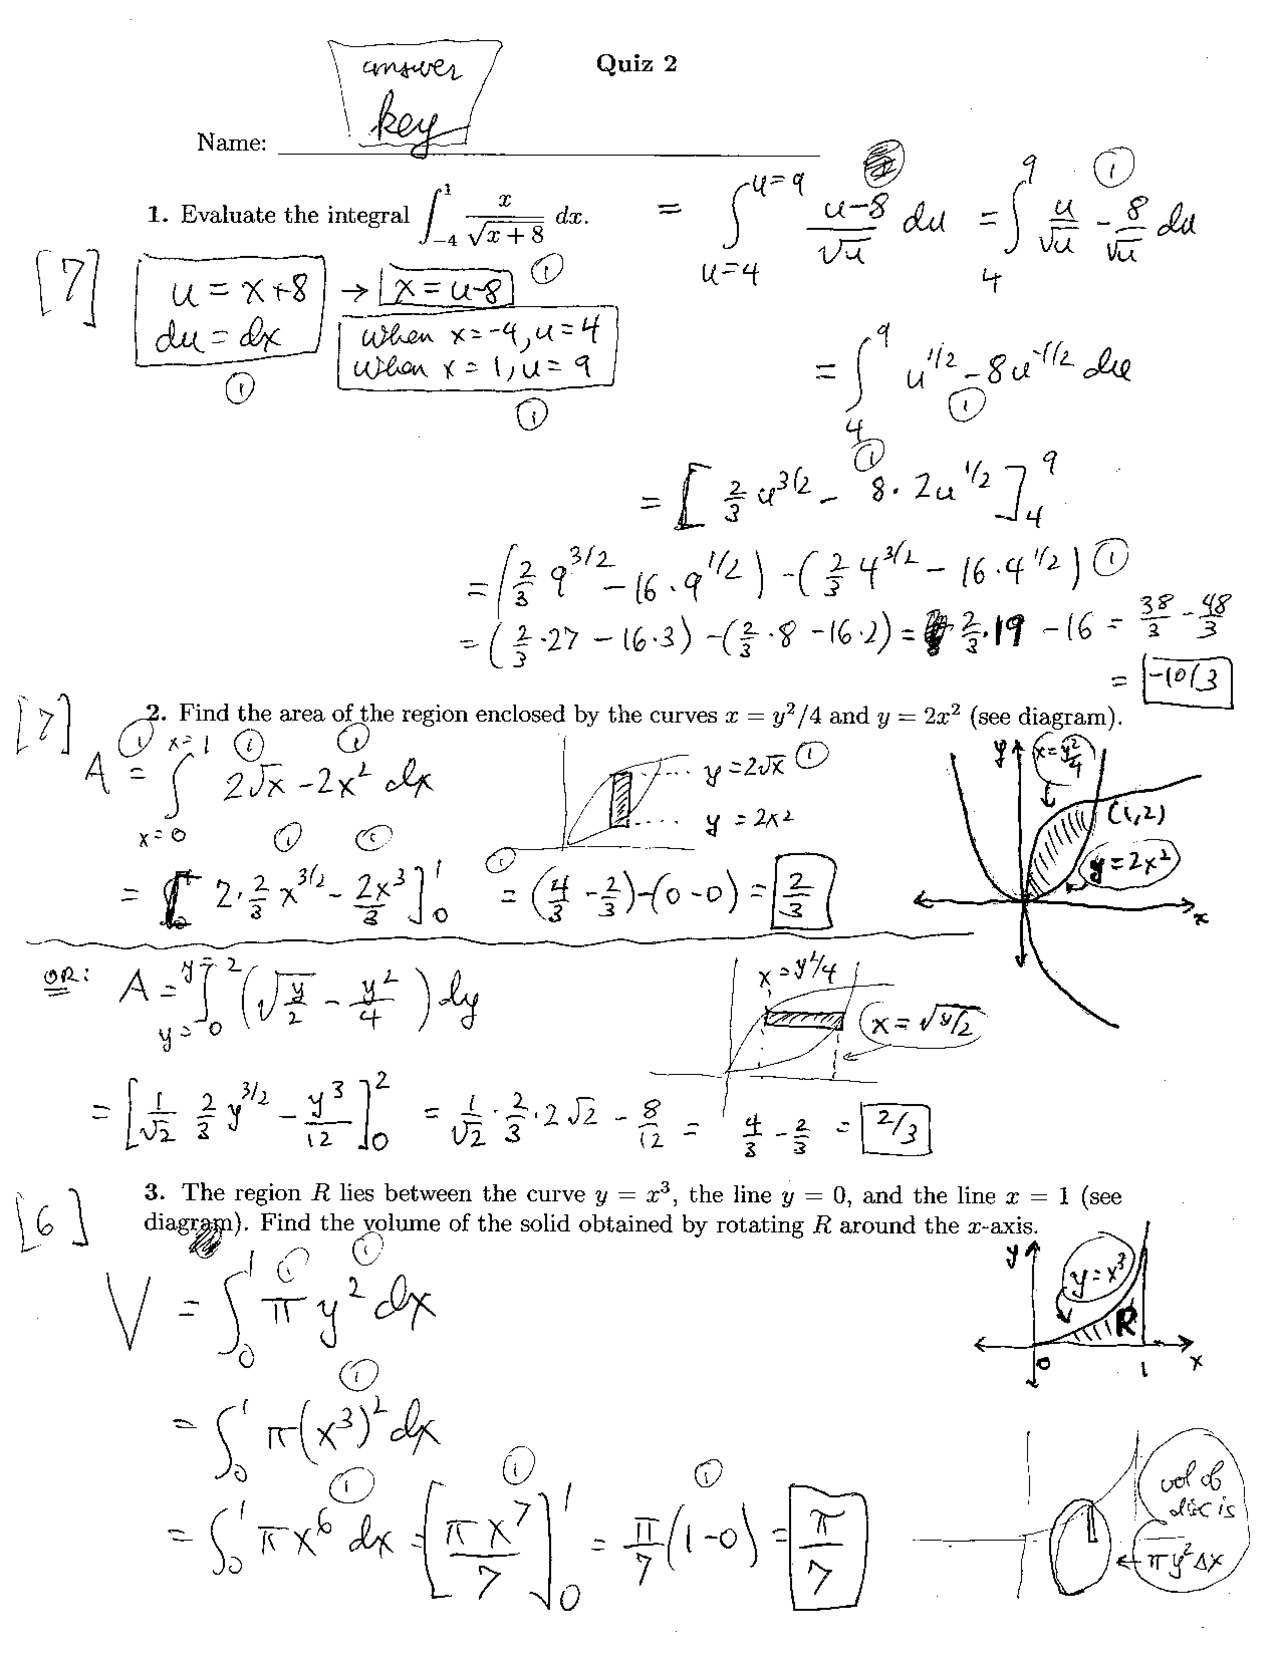 Quiz 2
answer
key
Name:
1. Evaluate the integral ∫_{-4}^{1} x/√(x + 8) dx.
= ∫_{u=4}^{u=9} (u-8)/√u du = ∫_4^9 u/√u - 8/√u du ①
[7]
u = x+8 → x = u-8 ①
du = dx
①
when x=-4, u=4
when x=1, u=9
①
= ∫_4^9 u^{1/2} - 8u^{-1/2} du
①
①
= [2/3 u^{3/2} - 8·2u^{1/2}]_4^9
= (2/3 9^{3/2} - 16·9^{1/2}) - (2/3 4^{3/2} - 16·4^{1/2}) ①
= (2/3·27 - 16·3) - (2/3·8 - 16·2) = 2/3·19 - 16 = 38/3 - 48/3
= -10/3
[7]
2. Find the area of the region enclosed by the curves x = y²/4 and y = 2x² (see diagram).
① ① ①
A = ∫_{x=0}^{x=1} 2√x - 2x² dx
y = 2√x ①
y = 2x²
y
x = y²/4
(1,2)
y = 2x²
x
① ① ①
= [2·2/3 x^{3/2} - 2x³/3]_0^1 = (4/3 - 2/3) - (0-0) = 2/3
OR: A = ∫_{y=0}^{y=2} (√(y/2) - y²/4) dy
x = y²/4
x = √(y/2)
= [1/√2 2/3 y^{3/2} - y³/12]_0^2 = 1/√2·2/3·2√2 - 8/12 = 4/3 - 2/3 = 2/3
[6]
3. The region R lies between the curve y = x³, the line y = 0, and the line x = 1 (see
diagram). Find the volume of the solid obtained by rotating R around the x-axis.
① ①
V = ∫_0^1 π y² dx
y
y = x³
R
0
1
x
①
= ∫_0^1 π(x³)² dx
① ① ①
= ∫_0^1 πx⁶ dx = [πx⁷/7]_0^1 = π/7 (1-0) = π/7
vol of
disc is
← πy²Δx